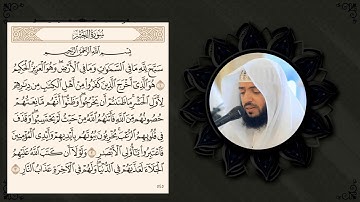 سُورَةُ الحَشْرِ
بِسْمِ اللَّهِ الرَّحْمَٰنِ الرَّحِيمِ
سَبَّحَ لِلَّهِ مَا فِي السَّمَٰوَٰتِ وَمَا فِي الْأَرْضِ وَهُوَ الْعَزِيزُ الْحَكِيمُ
۝١ هُوَ الَّذِي أَخْرَجَ الَّذِينَ كَفَرُوا مِنْ أَهْلِ الْكِتَٰبِ مِن دِيَٰرِهِمْ
لِأَوَّلِ الْحَشْرِ مَا ظَنَنتُمْ أَن يَخْرُجُوا وَظَنُّوا أَنَّهُم مَّانِعَتُهُمْ
حُصُونُهُم مِّنَ اللَّهِ فَأَتَىٰهُمُ اللَّهُ مِنْ حَيْثُ لَمْ يَحْتَسِبُوا وَقَذَفَ
فِي قُلُوبِهِمُ الرُّعْبَ يُخْرِبُونَ بُيُوتَهُم بِأَيْدِيهِمْ وَأَيْدِي الْمُؤْمِنِينَ
فَاعْتَبِرُوا يَٰأُولِي الْأَبْصَٰرِ ۝٢ وَلَوْلَا أَن كَتَبَ اللَّهُ عَلَيْهِمُ
الْجَلَاءَ لَعَذَّبَهُمْ فِي الدُّنْيَا وَلَهُمْ فِي الْآخِرَةِ عَذَابُ النَّارِ ۝٣
٥٤٥